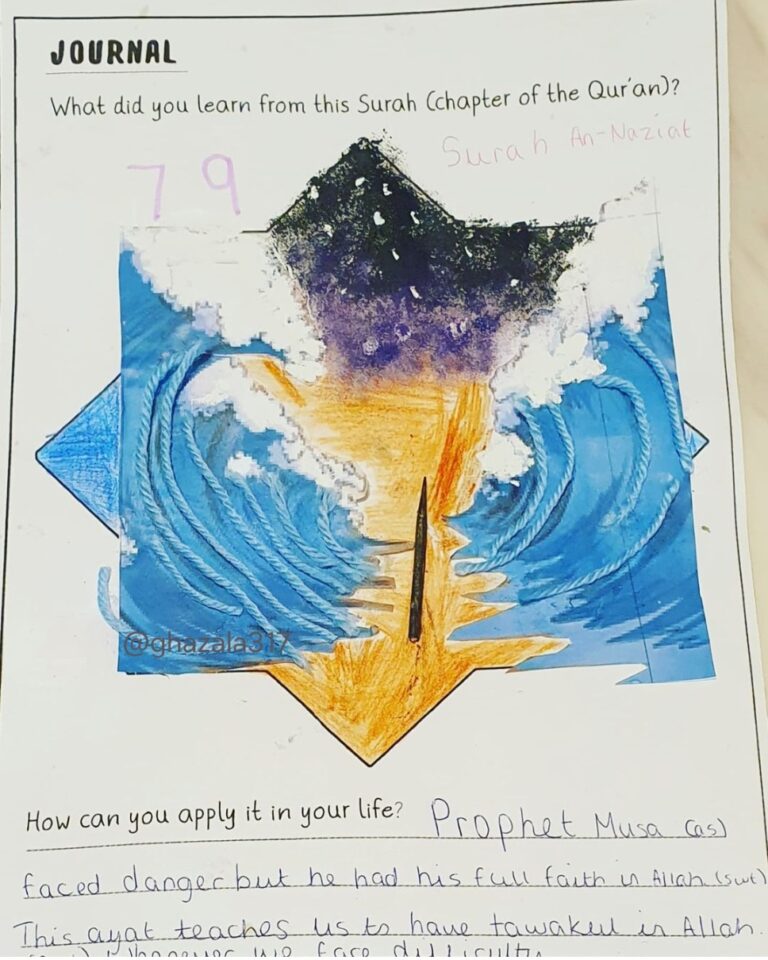 JOURNAL
What did you learn from this Surah (chapter of the Qur'an)?
79
Surah An-Naziat
@ghazala317
How can you apply it in your life? Prophet Musa (as)
faced danger but he had his full faith in Allah (swt)
This ayat teaches us to have tawakul in Allah.
whenever we face difficulty